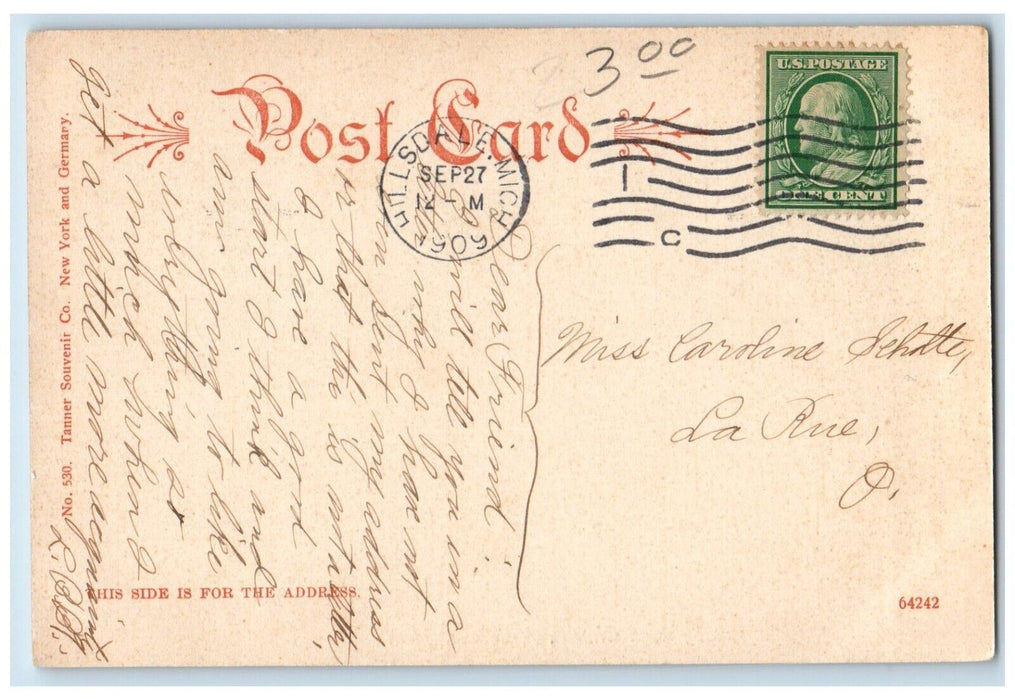 3 00
U.S. POSTAGE
ONE CENT
Post Card
HILLSDALE, MICH
SEP 27
12-M
1909
1
C
Dear Friend:
will tell you in a
why I have not
sent my address
or that the is not
I have a good
start I think and
am going to like
everything so
much when I
get a little more acquaint
Miss Caroline Schotte,
La Rue,
O.
THIS SIDE IS FOR THE ADDRESS.
64242
No. 530. Tanner Souvenir Co. New York and Germany.